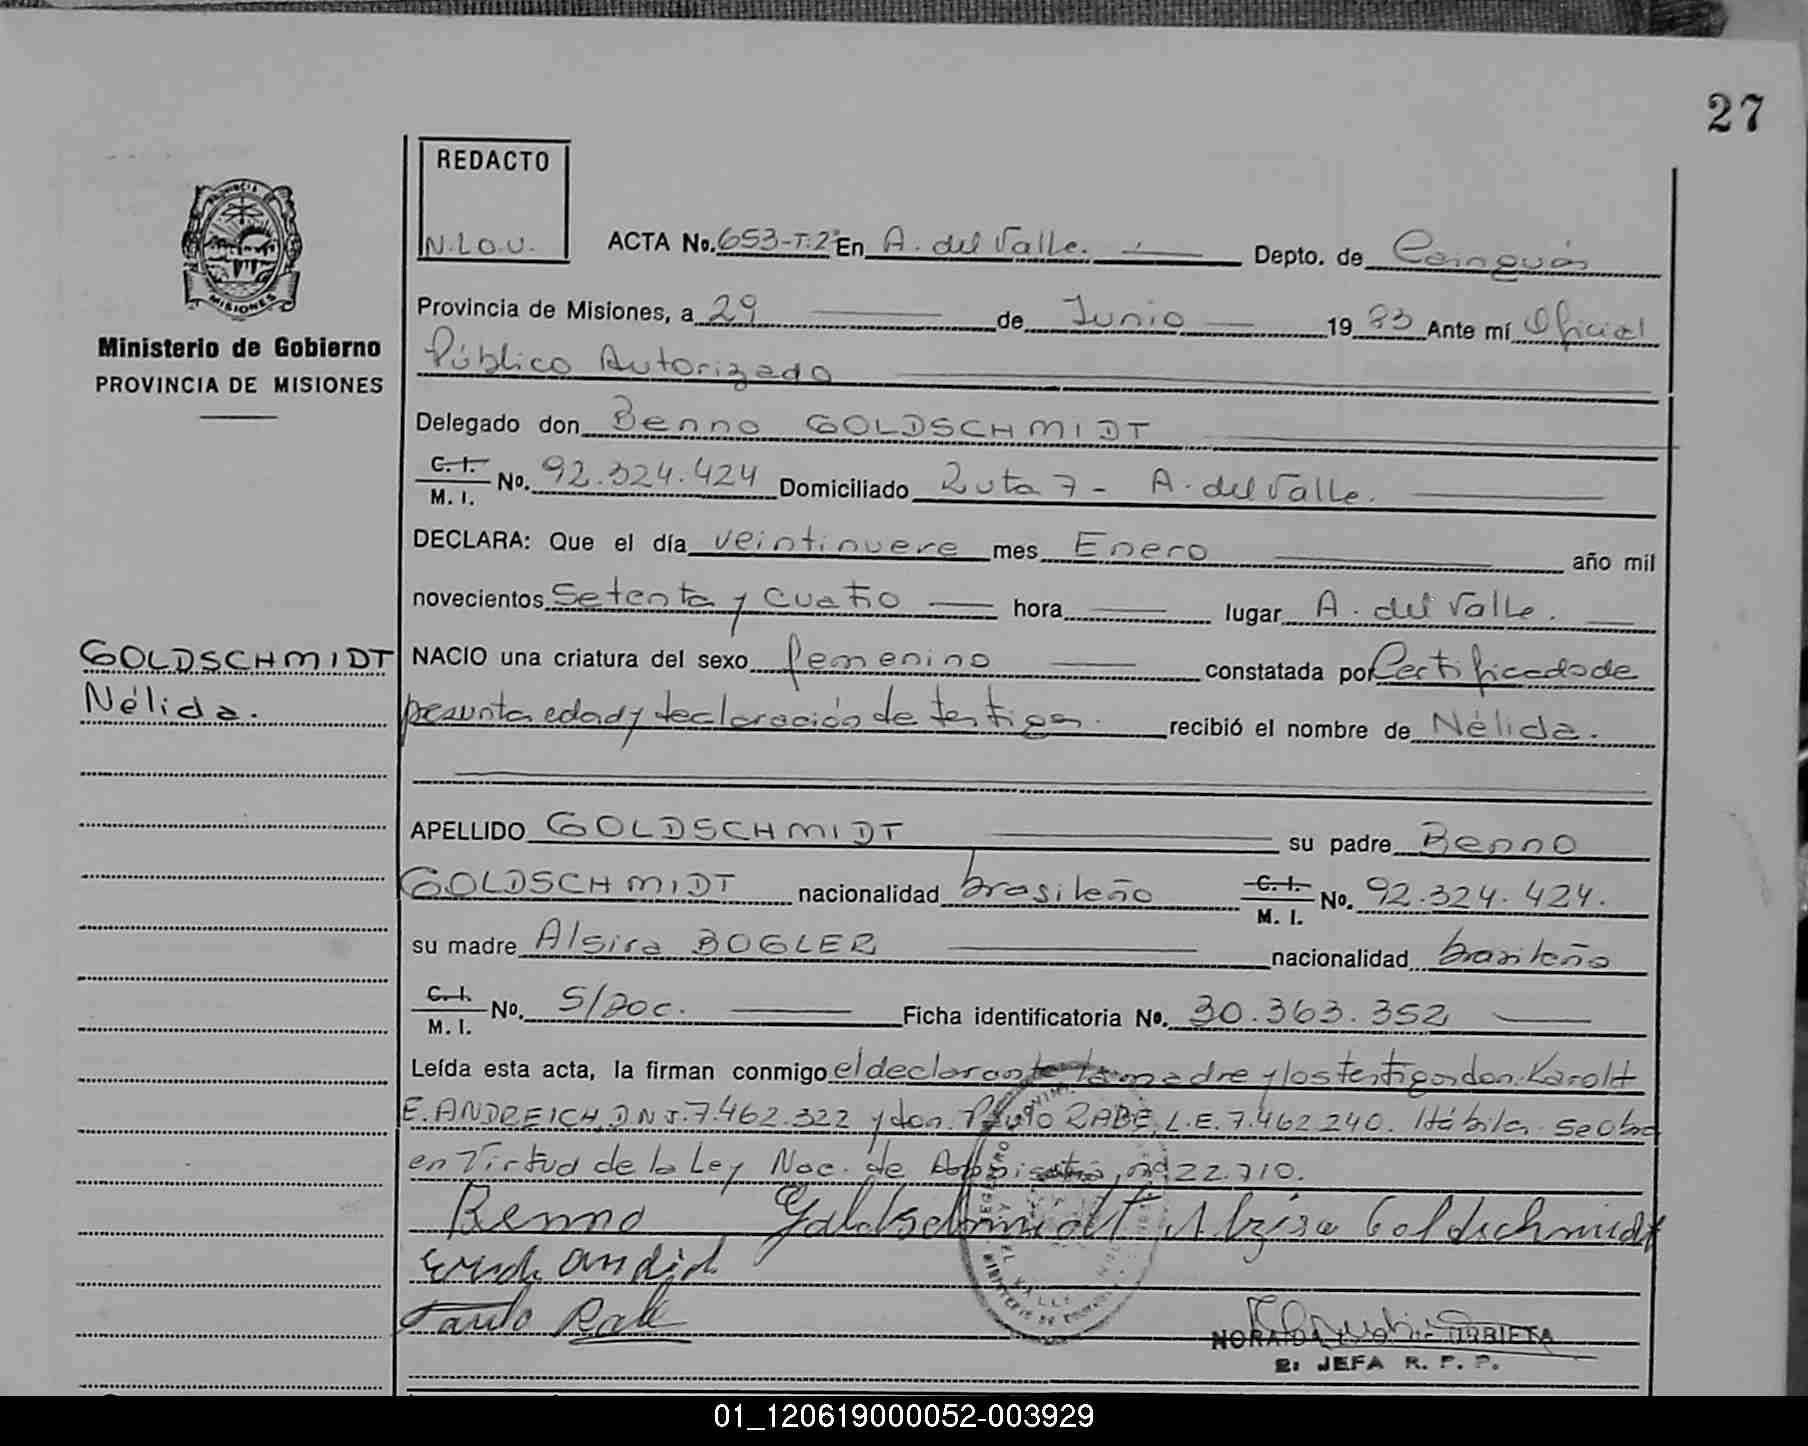 27
REDACTO
N.L.O.U.
ACTA No. 653-T:2º En A. del Valle. Depto. de Cainguás
Provincia de Misiones, a 29 de Junio 1983 Ante mí Oficial
Público Autorizado
Ministerio de Gobierno
PROVINCIA DE MISIONES
Delegado don Benno GOLDSCHMIDT
C. I. / M. I. No. 92.324.424 Domiciliado Ruta 7 - A. del Valle.
DECLARA: Que el día veintinueve mes Enero año mil
novecientos Setenta y cuatro hora lugar A. del Valle.
GOLDSCHMIDT
Nélida.
NACIO una criatura del sexo femenino constatada por Certificado de
presunta edad y declaración de testigos. recibió el nombre de Nélida.
APELLIDO GOLDSCHMIDT su padre Benno
GOLDSCHMIDT nacionalidad brasileño C. I. / M. I. No. 92.324.424.
su madre Alsira BOGLER nacionalidad brasileña
C. I. / M. I. No. S/Doc. Ficha identificatoria No. 30.363.352
Leída esta acta, la firman conmigo el declarante la madre y los testigos don. Karolt
E. ANDREICH, D.N.I. 7.462.322 y don. Paulo RABE, L.E. 7.462.240. Hábiles. Se Obra
en Virtud de la Ley Nac. de Amnistía, nº 22.710.
Benno Goldschmidt Alzira Goldschmidt
Paulo Rabe
NORAIDA URRIETA
JEFA R. P. P.
01_120619000052-003929